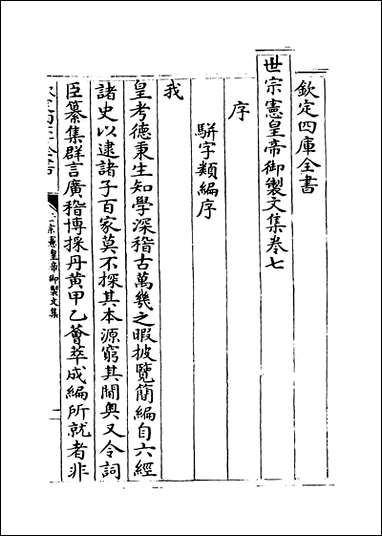 欽定四庫全書
世宗憲皇帝御製文集卷七
序
駢字類編序
我
皇考德秉生知學深稽古萬幾之暇披覽簡編自六經
諸史以逮諸子百家莫不探其本源窮其閫奥又令詞
臣纂集群言廣稽博採丹黄甲乙薈萃成編所就者非
憲皇帝御製文集